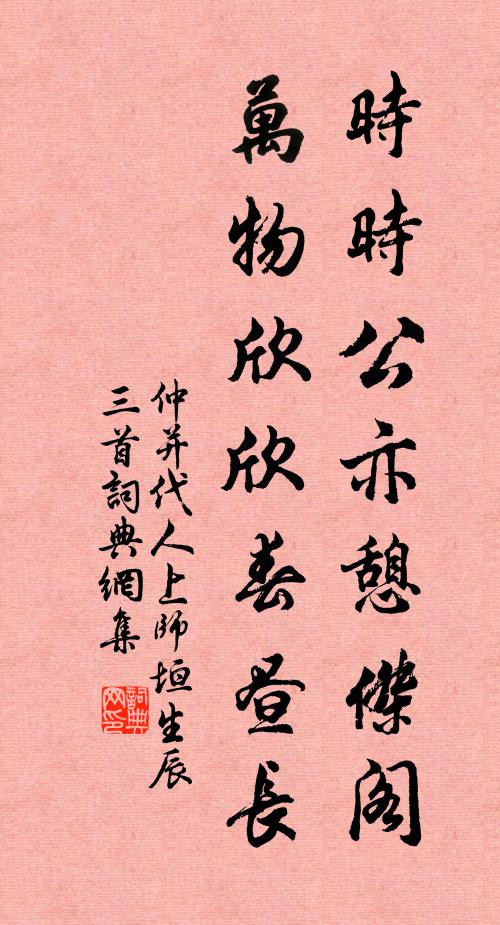 時時公亦憩傑閣
萬物欣欣春晝長
仲并代人上師垣生辰
三首詞典網集
詞典網印